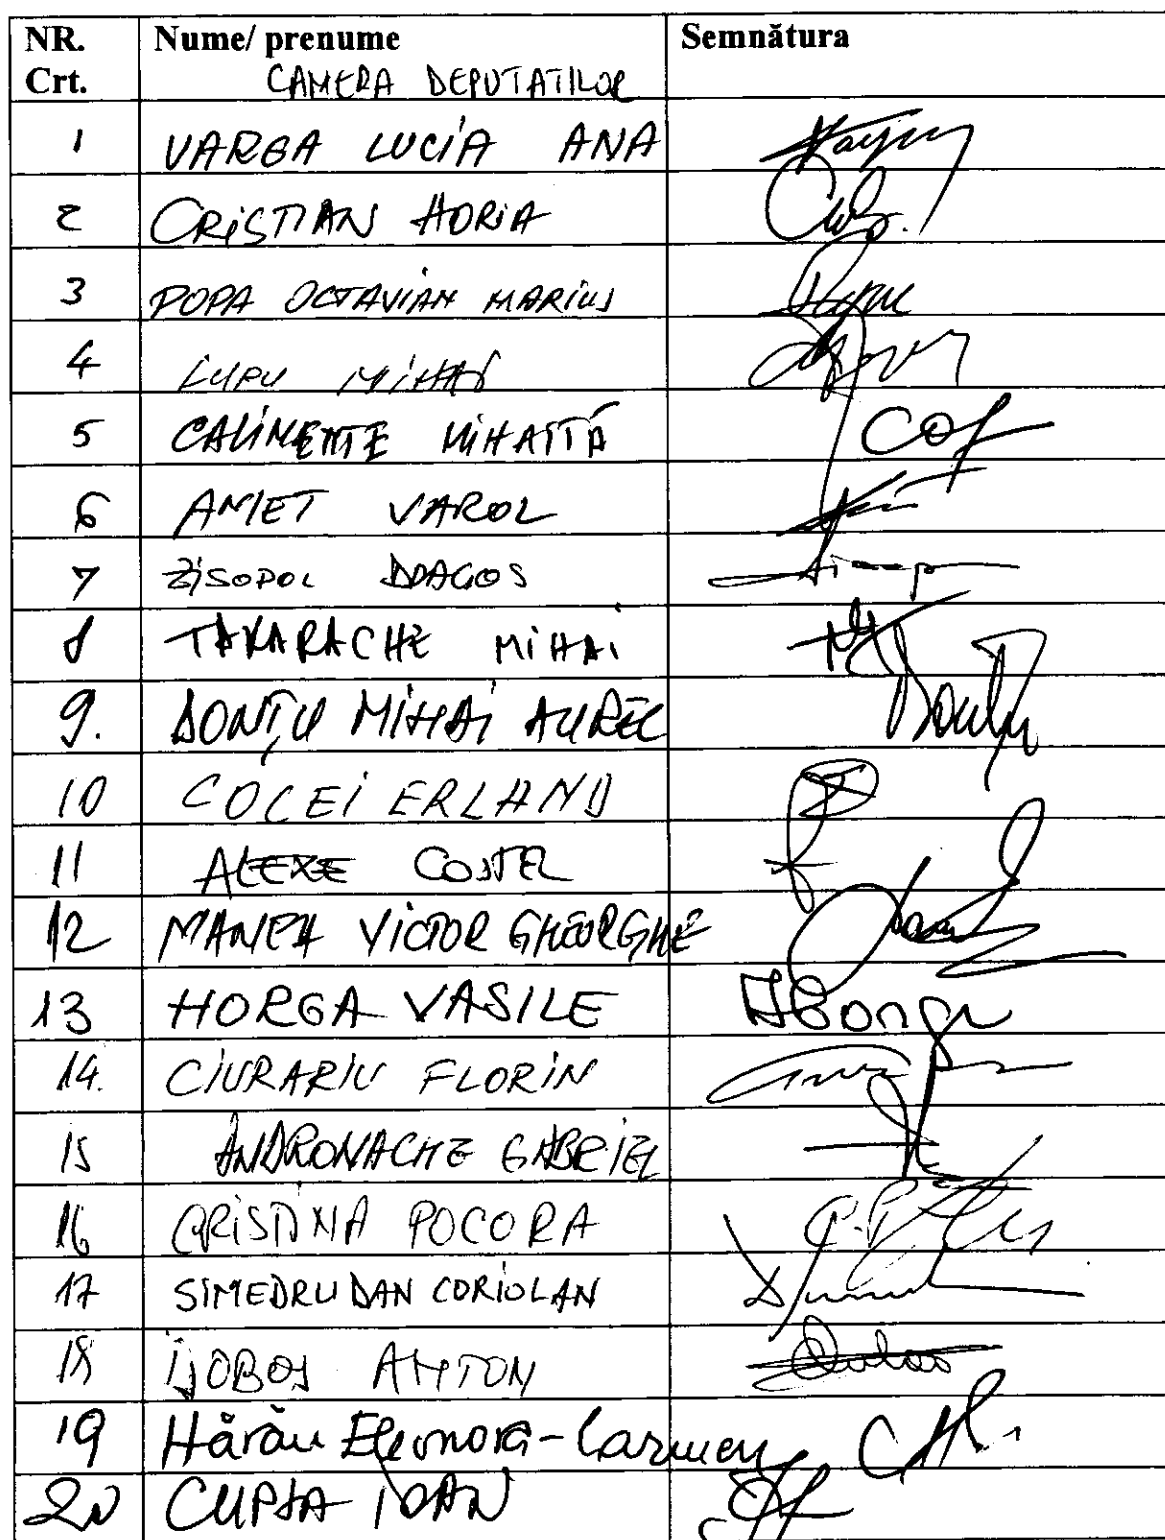 NR. Crt. Nume/ prenume Semnătura
CAMERA DEPUTATILOR
1 VARGA LUCIA ANA
2 CRISTIAN HORIA
3 POPA OCTAVIAN MARIUS
4 LUPU MIHAI
5 CALIMENTE MIHAITĂ
6 AMET VAROL
7 ZISOPOL DRAGOS
8 TANARACHE MIHAI
9. DONȚU MIHAI AUREL
10 COLEI ERLAND
11 ALEXE COSTEL
12 MANEA VICTOR GHEORGHE
13 HORGA VASILE
14. CIURARIU FLORIN
15 ANDRONACHE GABRIEL
16 CRISTINA POCORA
17 SIMEDRU DAN CORIOLAN
18 ANTON
19 Hărău Eleonora-Carmen
20 CUPȘA IOAN